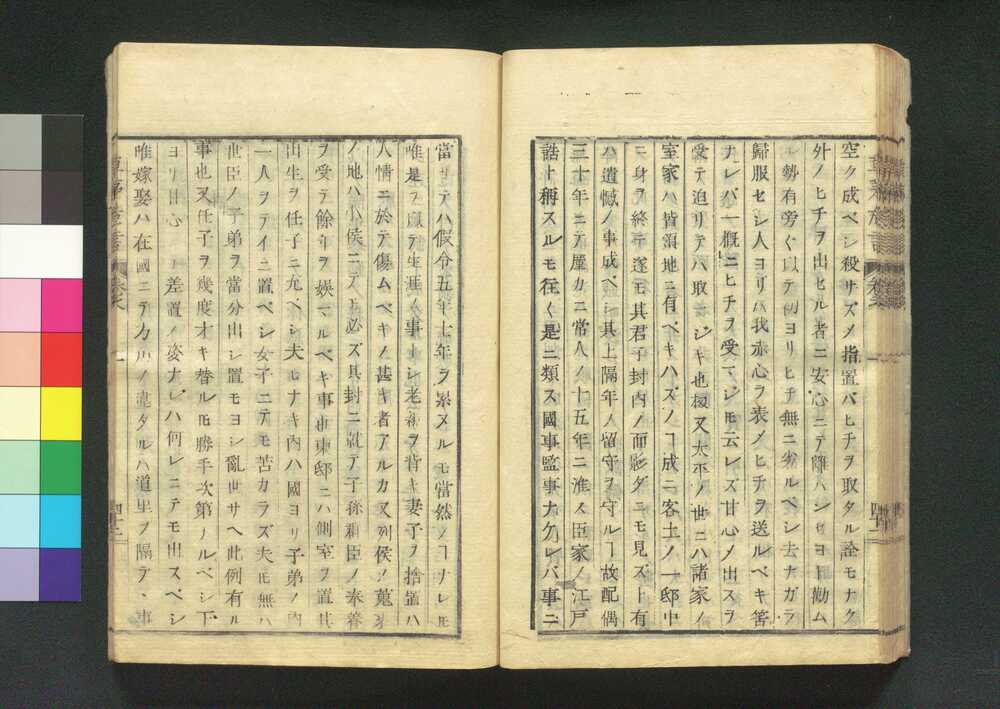 空ク成ベシ殺サズメ指置バヒチヲ取タル詮モナク
外ノヒチヲ出セル者ニ安心ニテ離ハシセヨト勸ム
ル勢有旁ぐ以テ初ヨリヒチ無ニ劣ルベシ去ナガラ
歸服セシ人ヨリハ我赤心ヲ表メヒチヲ送ルベキ筈
ナレバ一概ニヒチヲ受マジモ云レズ甘心メ出スヲ
受テ迫リテハ取マジキ也扨又太平ノ世ニハ諸家ノ
室家ハ皆領地ニ有ベキハズノヿ成ニ客土ノ一邸中
ニ身ヲ終テ遂モ其君子封内ノ面影ダニモ見ズト有
ハ遺憾ノ事成ベシ其上隔年ノ留守ヲ守ルヿ故配偶
三十年ニテ僅カニ常人ノ十五年ニ准ス臣家ノ江戸
詰ト稱スルモ往ぐ是ニ類ス國事監事ナクレバ事ニ
當リテハ假令五年七年ヲ累ヌルモ當然ノヿナレモ
唯是ヲ以テ生涯ノ事トシ老親ヲ背キ妻子ヲ捨置ハ
人情ニ於テ傷ムベキノ甚キ者アルカ又列侯ノ蒐裘
ノ地ハ小侯ニテモ必ズ其封ニ就テ子孫羣臣ノ奉養
ヲ受テ餘年ヲ娯マルベキ事也東邸ニハ側室ヲ置其
出生ヲ任子ニ充ベシ夫モナキ内ハ國ヨリ子弟ノ内
一人ヲテイニ置ベシ女子ニテモ苦カラズ夫モ無ハ
世臣ノ子弟ヲ當分出シ置モヨシ亂世サヘ此例有ル
事也又任子ヲ幾度才キ替ルモ勝手次第ノルベシ下
ヨリ甘心 差置ノ姿ナレハ何レニテモ出スベシ
唯嫁娶ハ在國ニテカ ノ違タルハ道里ヲ隔テ、事